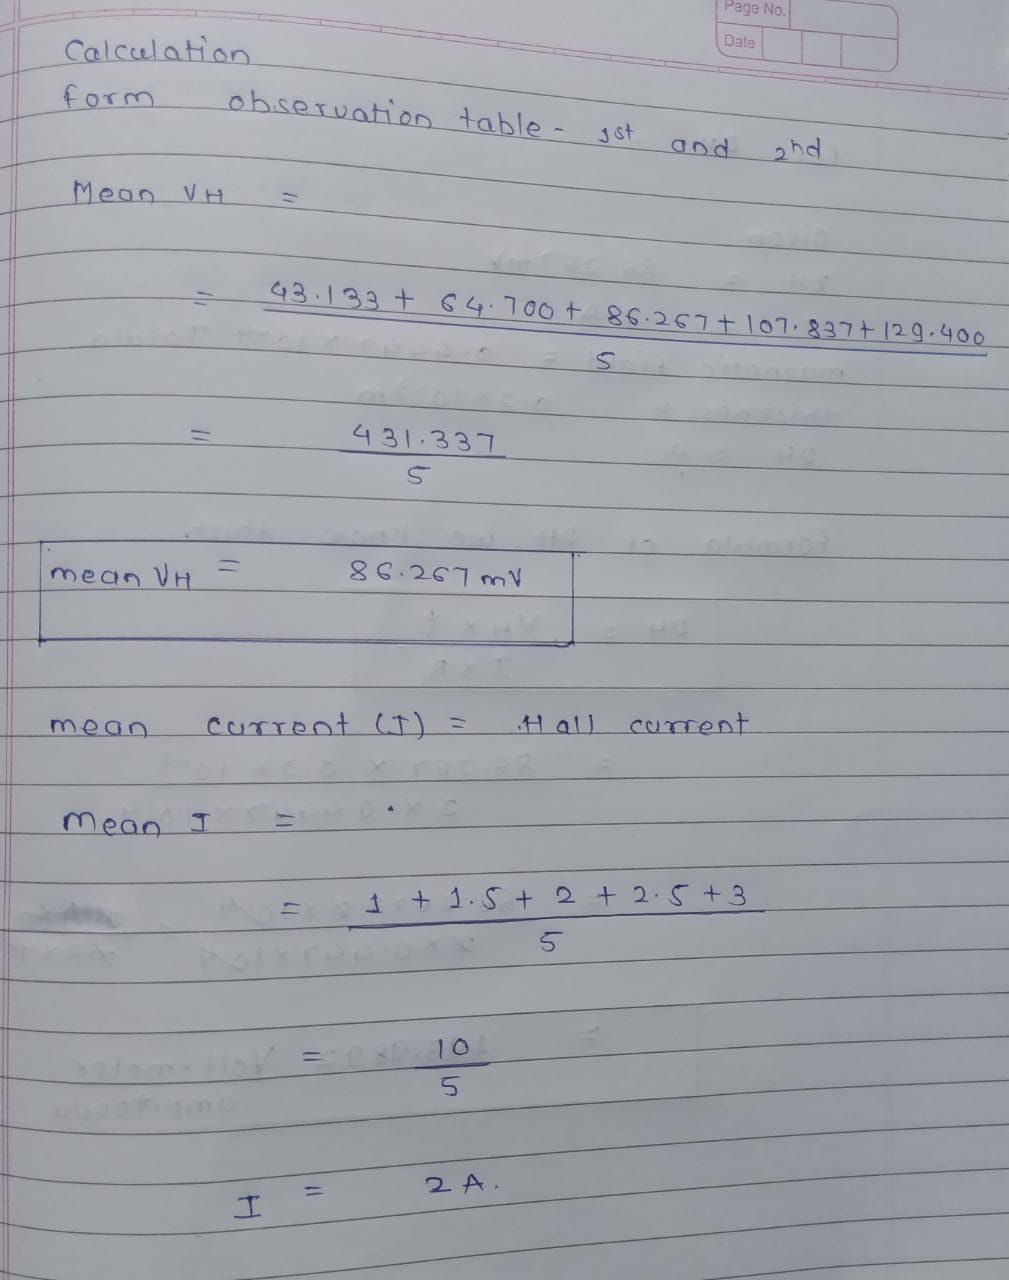 Page No.
Date
Calculation
form observation table - 1st and 2nd
Mean VH =
= 43.133 + 64.700 + 86.267 + 107.837 + 129.400
5
= 431.337
5
mean VH = 86.267 mV
mean current (I) = Hall current
Mean I =
= 1 + 1.5 + 2 + 2.5 + 3
5
= 10
5
I = 2 A.